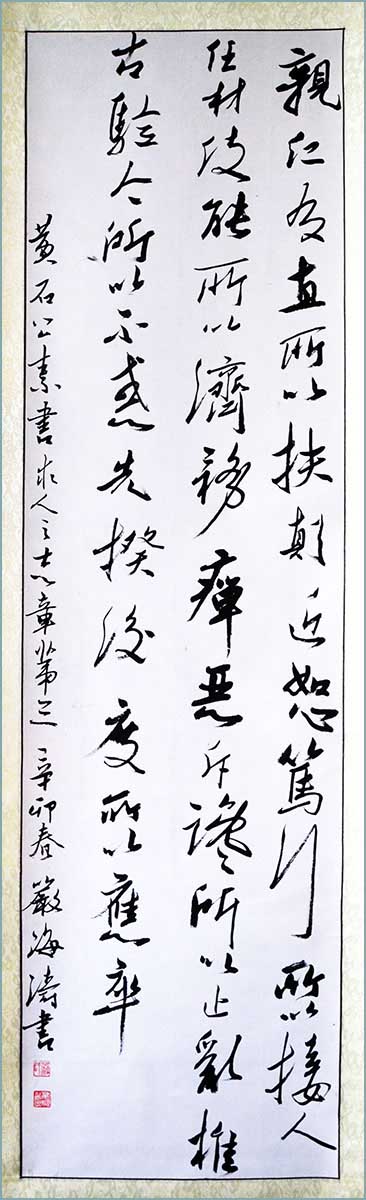 親仁友直所以扶顛近恕篤行所以接人
任材使能所以濟務癉惡斥讒所以止亂推
古驗今所以不惑先揆後度所以應卒
黃石公素書求人之志章第三 辛卯春 嚴海濤書